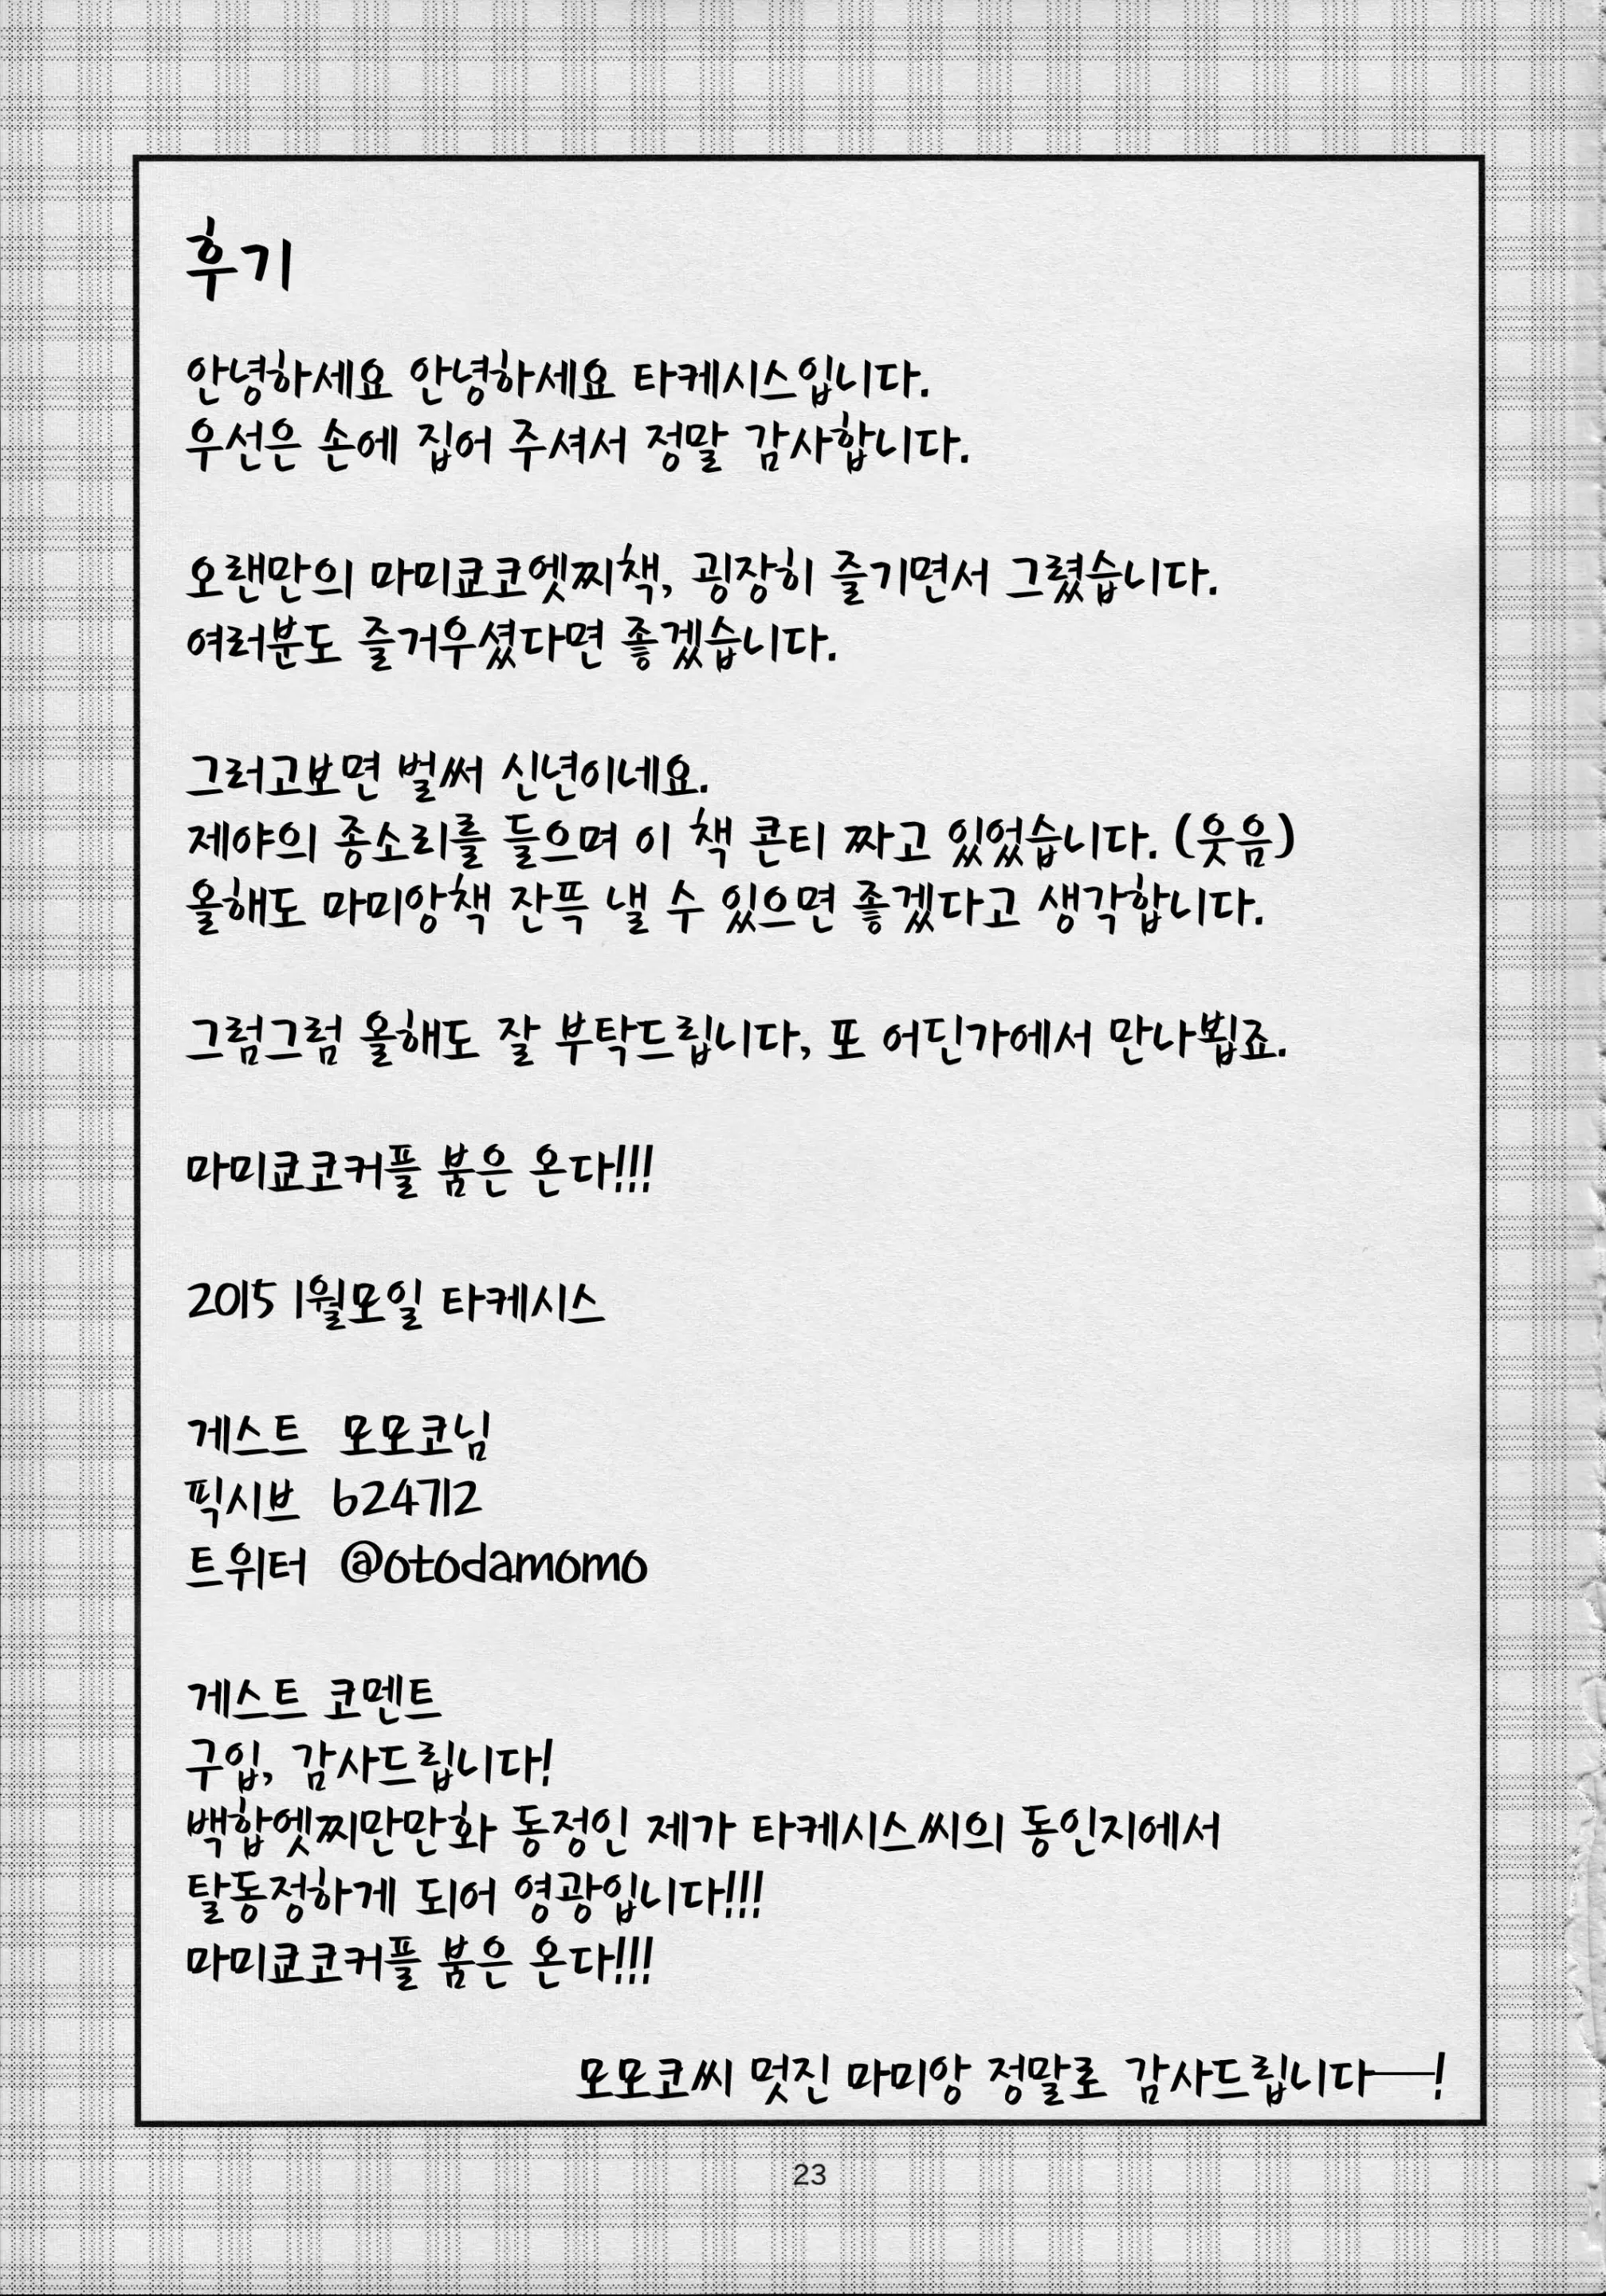 후기
안녕하세요 안녕하세요 타케시스입니다.
우선은 손에 집어 주셔서 정말 감사합니다.
오랜만의 마미쿄코엣찌책, 굉장히 즐기면서 그렸습니다.
여러분도 즐거우셨다면 좋겠습니다.
그러고보면 벌써 신년이네요.
제야의 종소리를 들으며 이 책 콘티 짜고 있었습니다. (웃음)
올해도 마미앙책 잔뜩 낼 수 있으면 좋겠다고 생각합니다.
그럼그럼 올해도 잘 부탁드립니다, 또 어딘가에서 만나뵙죠.
마미쿄코커플 붐은 온다!!!
2015 1월모일 타케시스
게스트 모모코님
픽시브 624712
트위터 @otodamomo
게스트 코멘트
구입, 감사드립니다!
백합엣찌만만화 동정인 제가 타케시스씨의 동인지에서
탈동정하게 되어 영광입니다!!!
마미쿄코커플 붐은 온다!!!
모모코씨 멋진 마미앙 정말로 감사드립니다──!
23